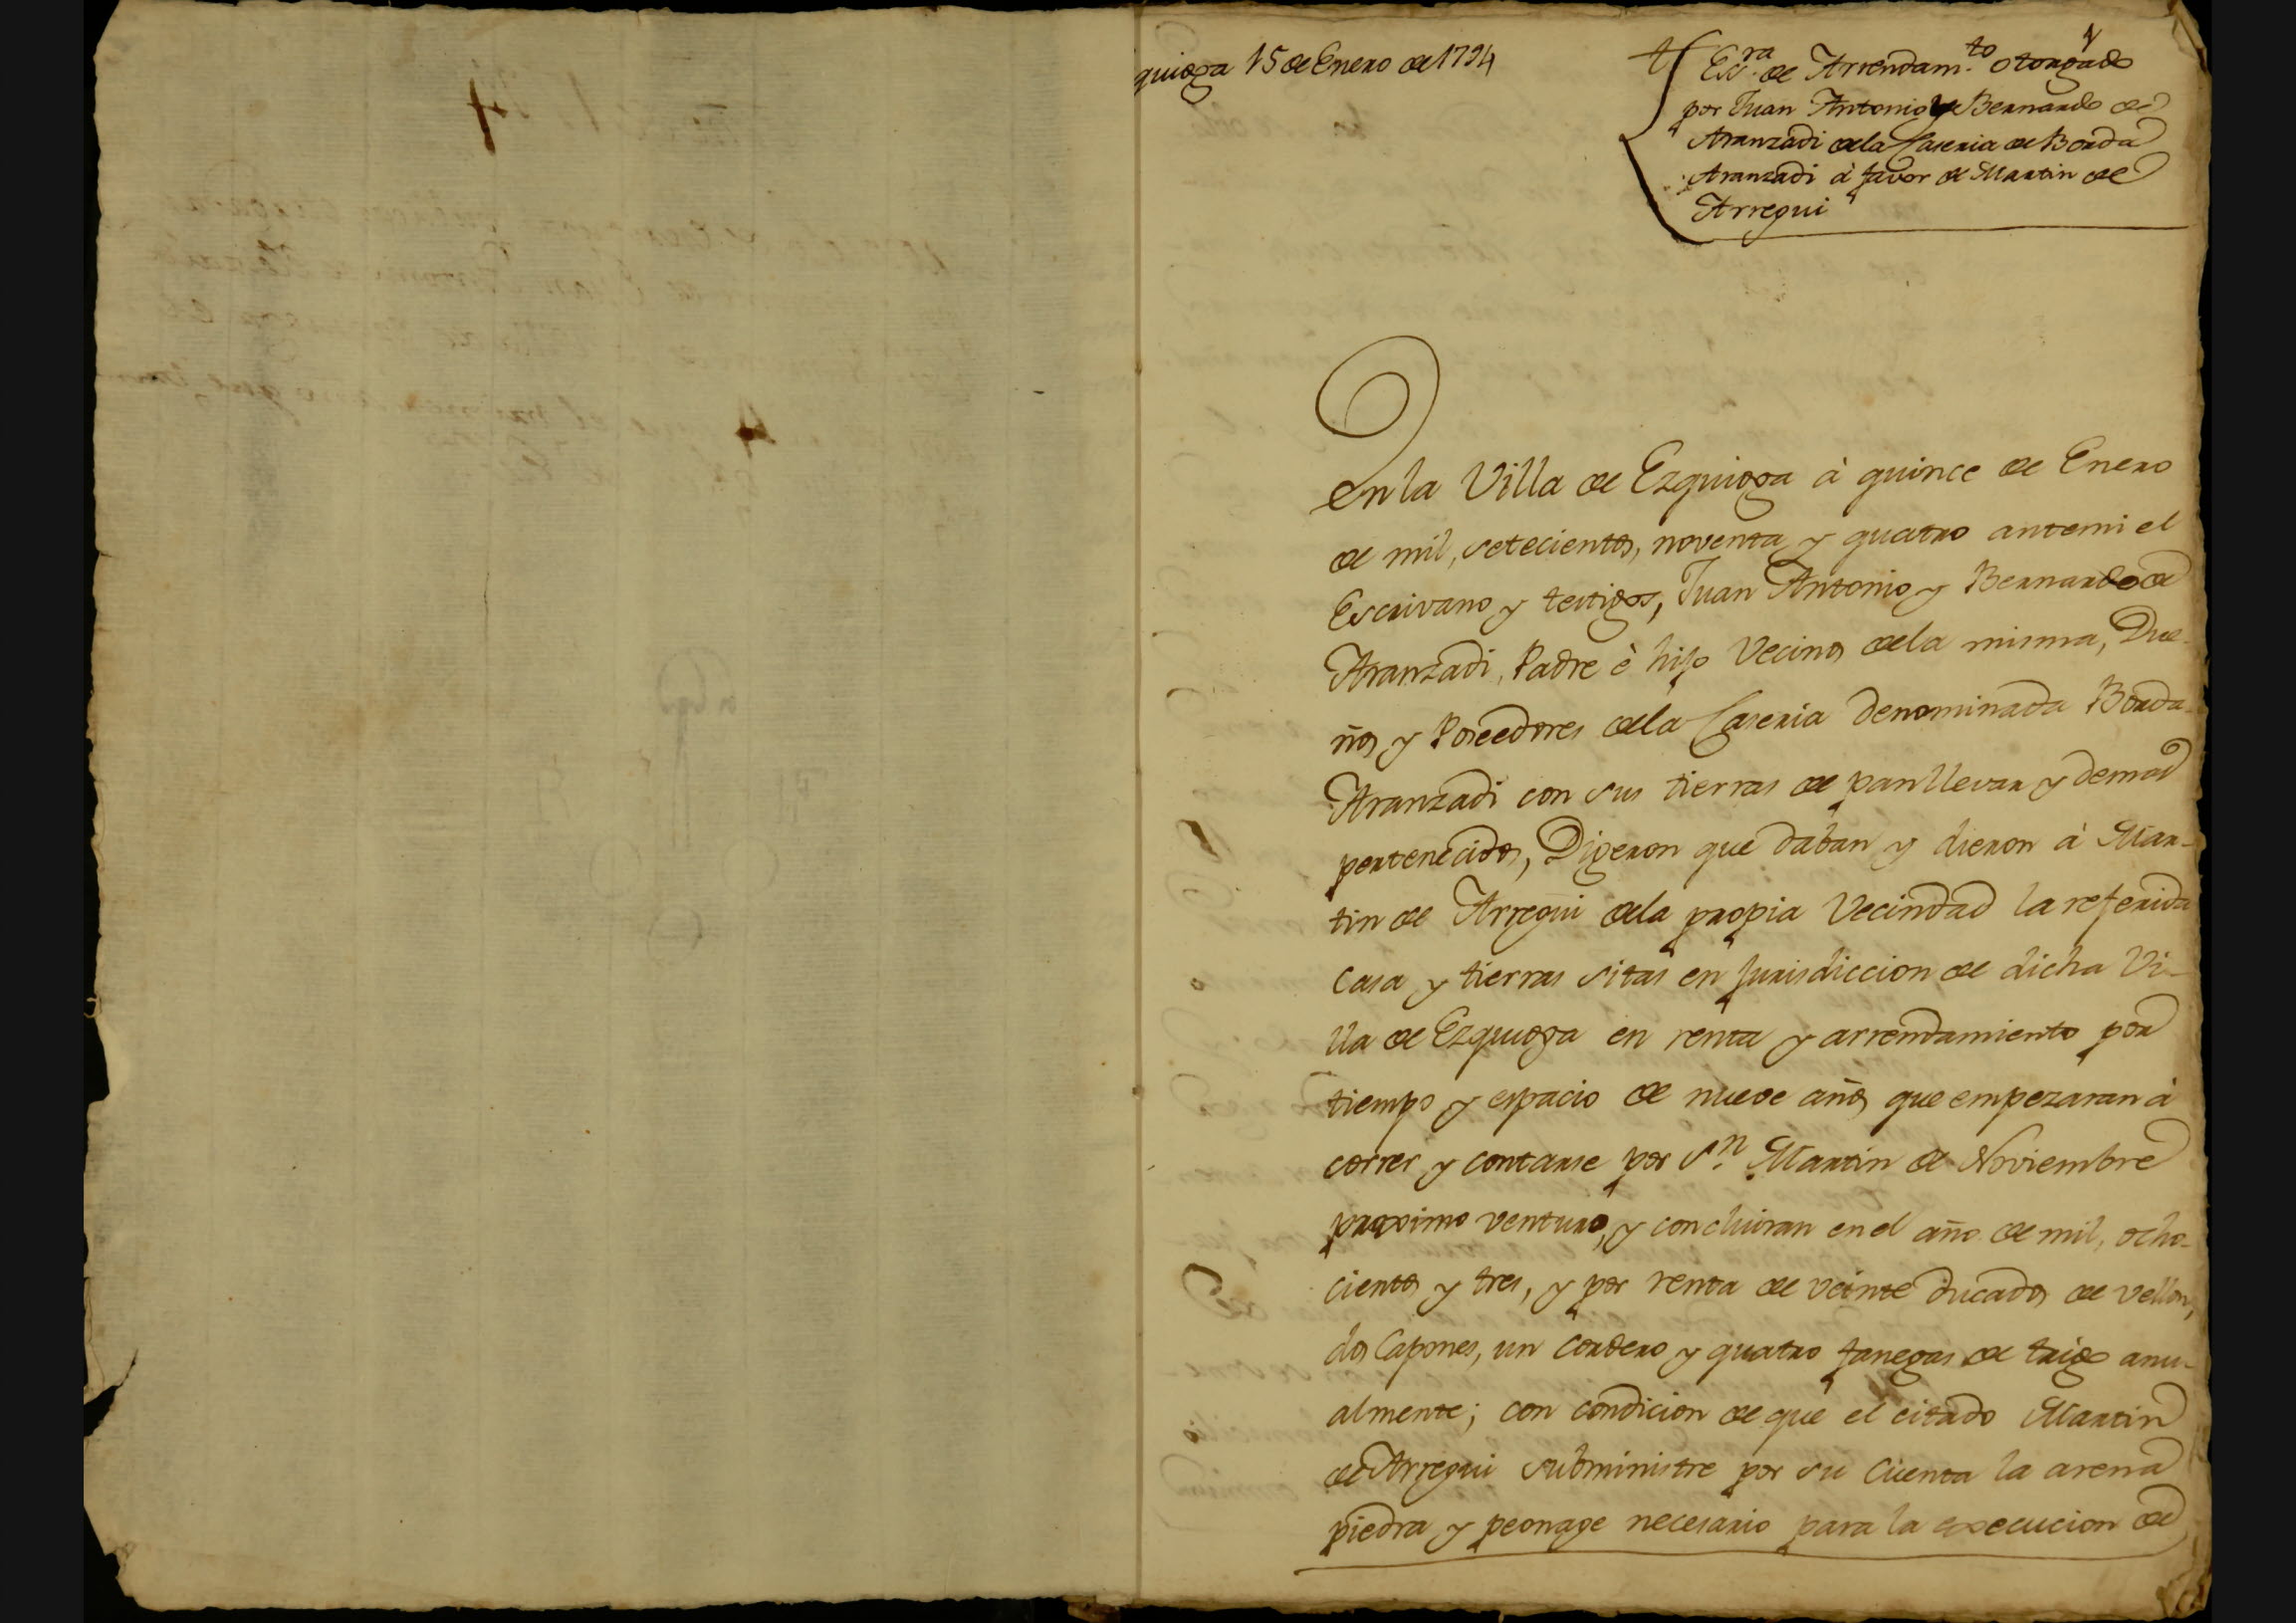 quioga 15 de Enero de 1794
Esc.ra de Arrendam.to otorgado
por Juan Antonio y Bernardo de
Aranzadi dela Caseria de Borda
Aranzadi à favor de Martin de
Arregui
En la Villa de Ezquioga à quince de Enero
de mil, setecientos, noventa y quatro antemi el
Escrivano y testigos, Juan Antonio y Bernardo de
Aranzadi, Padre è hijo Vecinos dela misma, Due-
ños y Poseedores dela Caseria denominada Borda-
Aranzadi con sus tierras de panllevar y demas
pertenecidos, Digeron que daban y dieron à Mar-
tin de Arregui dela propia Vecindad la referida
Casa y tierras sitas en Jurisdiccion de dicha Vi-
lla de Ezquioga en renta y arrendamiento por
tiempo y espacio de nueve años que empezaran à
correr y contarse por S.n Martin de Noviembre
proximo venturo, y concluiran en el año de mil, ocho-
cientos y tres, y por renta de veinte ducados de vellon,
dos Capones, un Cordero y quatro fanegas de trigo anu-
almente; con condicion de que el citado Martin
de Arregui subministre por su Cuenta la arena
piedra y peonage necesario para la execucion de